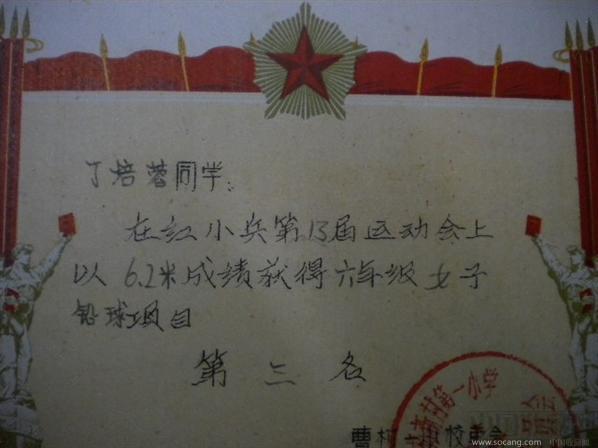 丁培蓉同学:
在红小兵第13届运动会上
以6.2米成绩获得六年级女子
铅球项目
第三名
村第一小学
曹
www.socang.com